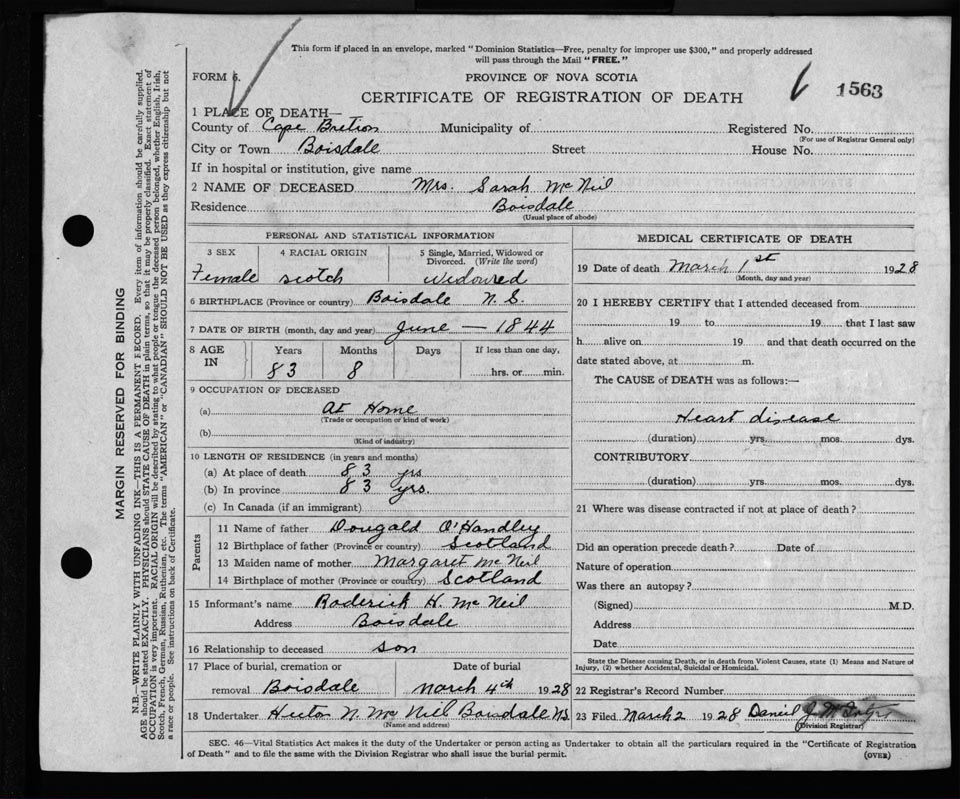 This form if placed in an envelope, marked "Dominion Statistics—Free, penalty for improper use $300," and properly addressed
will pass through the Mail "FREE."
FORM 6. PROVINCE OF NOVA SCOTIA
CERTIFICATE OF REGISTRATION OF DEATH 1563
1 PLACE OF DEATH—
County of Cape Breton Municipality of Registered No.
(For use of Registrar General only)
City or Town Boisdale Street House No.
If in hospital or institution, give name
2 NAME OF DECEASED Mrs. Sarah McNeil
Residence Boisdale
(Usual place of abode)
PERSONAL AND STATISTICAL INFORMATION
3 SEX 4 RACIAL ORIGIN 5 Single, Married, Widowed or
Divorced. (Write the word)
Female scotch widowed
6 BIRTHPLACE (Province or country) Boisdale N.S.
7 DATE OF BIRTH (month, day and year) June — 1844
8 AGE IN Years Months Days If less than one day,
83 8 hrs. or min.
9 OCCUPATION OF DECEASED
(a) At Home
(Trade or occupation or kind of work)
(b)
(Kind of industry)
10 LENGTH OF RESIDENCE (in years and months)
(a) At place of death 83 yrs
(b) In province 83 yrs.
(c) In Canada (if an immigrant)
Parents
11 Name of father Dougald O'Handley
12 Birthplace of father (Province or country) Scotland
13 Maiden name of mother Margaret McNeil
14 Birthplace of mother (Province or country) Scotland
15 Informant's name Roderick H. McNeil
Address Boisdale
16 Relationship to deceased son
17 Place of burial, cremation or Date of burial
removal Boisdale March 4th 1928
18 Undertaker Hector N. McNeil Boisdale N.S.
(Name and address)
MEDICAL CERTIFICATE OF DEATH
19 Date of death March 1st 1928
(Month, day and year)
20 I HEREBY CERTIFY that I attended deceased from
19 to 19 that I last saw
h alive on 19 and that death occurred on the
date stated above, at m.
The CAUSE of DEATH was as follows:—
Heart disease
(duration) yrs. mos. dys.
CONTRIBUTORY
(duration) yrs. mos. dys.
21 Where was disease contracted if not at place of death?
Did an operation precede death? Date of
Nature of operation
Was there an autopsy?
(Signed) M.D.
Address
Date
State the Disease causing Death, or in death from Violent Causes, state (1) Means and Nature of
Injury, (2) whether Accidental, Suicidal or Homicidal.
22 Registrar's Record Number
23 Filed March 2 1928 Daniel J.
(Division Registrar)
SEC. 46—Vital Statistics Act makes it the duty of the Undertaker or person acting as Undertaker to obtain all the particulars required in the "Certificate of Registration
of Death" and to file the same with the Division Registrar who shall issue the burial permit. (OVER)
MARGIN RESERVED FOR BINDING
N.B.—WRITE PLAINLY WITH UNFADING INK—THIS IS A PERMANENT RECORD. Every item of information should be carefully supplied.
AGE should be stated EXACTLY. PHYSICIANS should STATE CAUSE OF DEATH in plain terms, so that it may be properly classified. Exact statement of
OCCUPATION is very important. RACIAL ORIGIN will be described by stating to what people or tongue the deceased person belonged, whether English, Irish,
Scotch, French, German, Russian, Ruthenian, etc. The terms "AMERICAN" or "CANADIAN" SHOULD NOT BE USED as they express citizenship but not
a race or people. See instructions on back of Certificate.